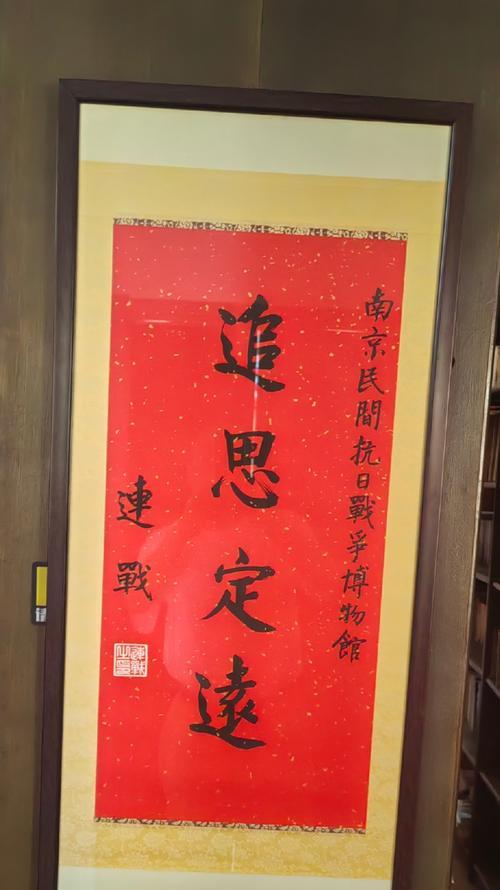 南京民間抗日戰爭博物館
追思定遠
連戰
連戰之印